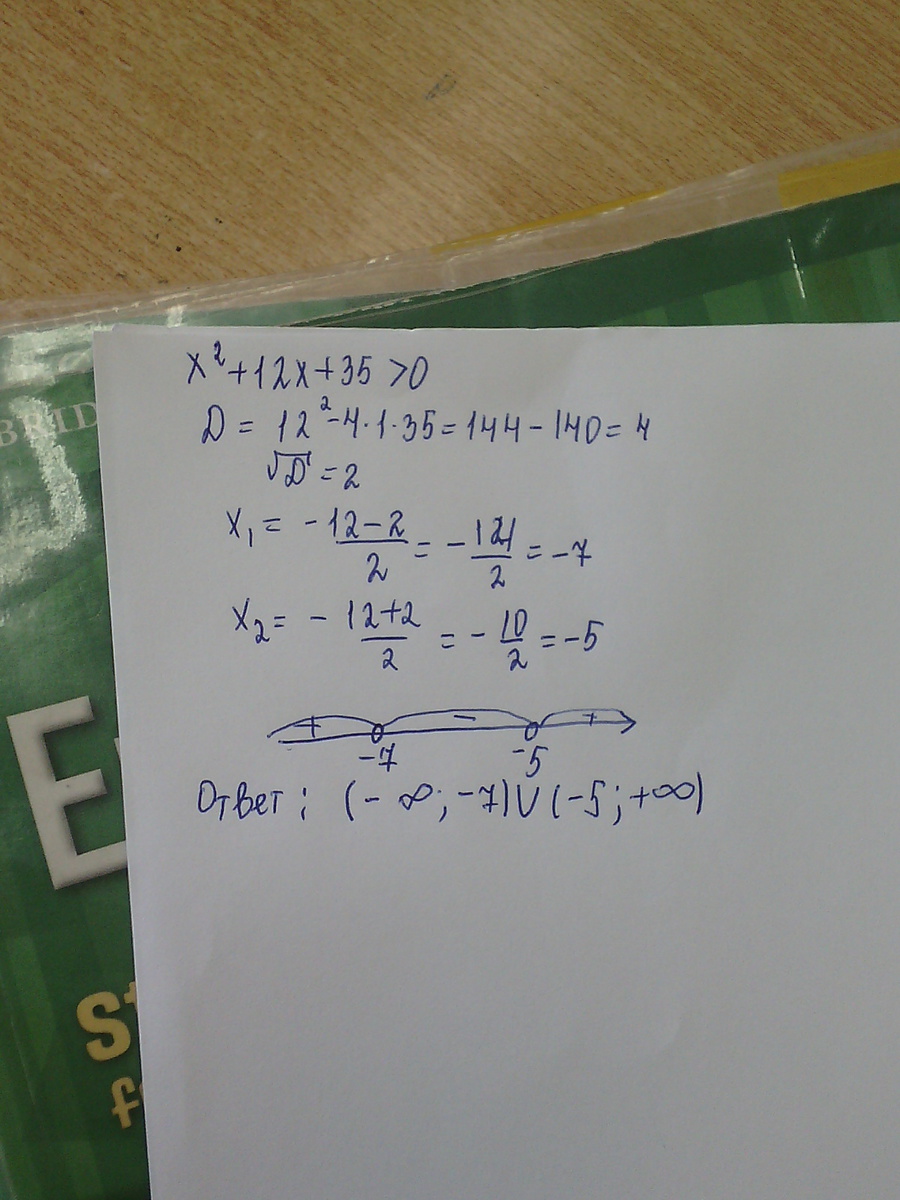 BRID
x²+12x+35 >0
D = 12²-4·1·35=144-140=4
√D =2
x₁ = -12-2/2 = -14/2 = -7
x₂ = - 12+2/2 = -10/2 = -5
+ - +
-7 -5
Ответ: (- ∞; -7)∪(-5; +∞)
E
St
f